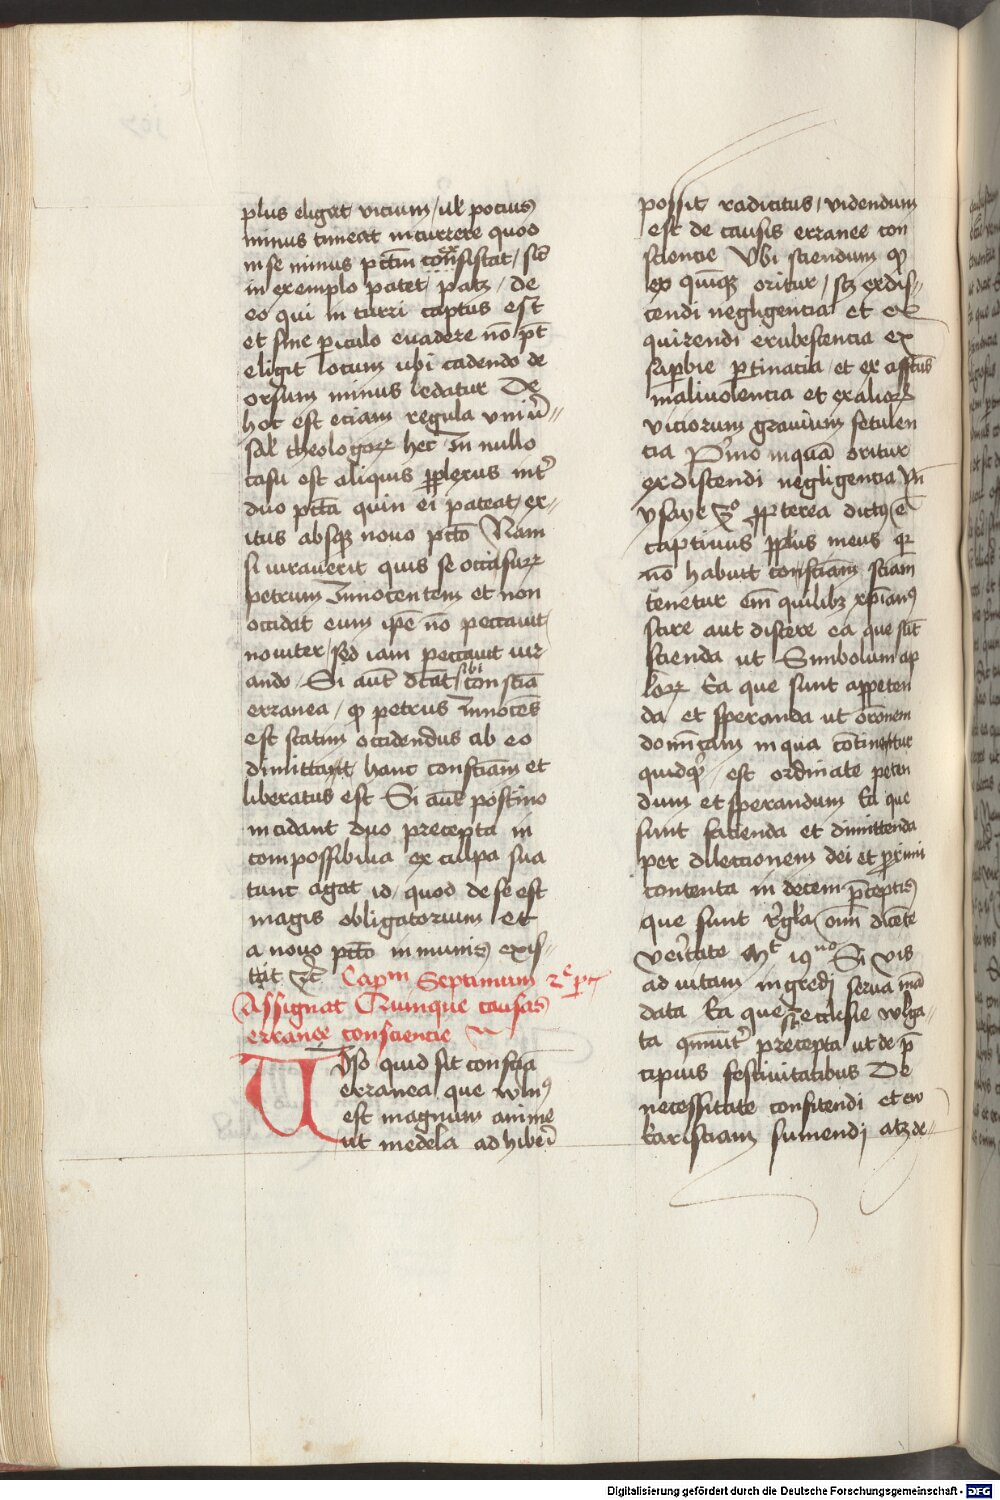 plus eligat vicium / ul' pocius
minus timeat incurrere quod
in se minus pctm consistat / sic
in exemplo patet / patz / de
eo qui in turri captus est
et sine piculo euadere no pt
eligit locum ubi cadendo de
orsum minus ledatur De
hoc est eciam regula vniu
sal' theologorz hec In nullo
casu est aliquis pplexus int
duo pcta quin ei pateat / ex
itus absqz nouo pcto Nam
si iurauerit quis se occisurz
petrum Innocentem et non
occidat eum ipe no peccauit
nouiter / sed iam peccauit iur
ando / Si aut dcat sibi conscia
erranea / qp petrus Innoces
est statim occidendus ab eo
dimittant hanc consciam et
liberatus est Si aut postmo
incidant duo precepta in
compossibilia ex culpa sua
tunc agat id / quod de se est
magis obligatorium et
a nouo pcto inmunis exis
tit etc Capm Septimum 2e p
Assignat Quinque causas
erranee consciencie
Viso quid sit conscia
erranea que vulnus
est magnum anime
ut medela adhiberi
possit radicitus / videndum
est de causis erranee con
sciencie Vbi sciendum qp
ex quinqz oritur / scz ex dis
cendi negligencia et ex
quirendi erubescencia ex
supbie ptinacia et ex affctus
maliuolencia et ex aliorz
viciorum grauium fetulen
cia Primo inqua oritur
ex discendi negligencia Vn
ysaye vo ppterea ductus e
captiuus pplus meus qr
no habuit consciam sciam
tenetur em quilibz xpianus
scire aut discere ea que sut
scienda ut Simbolum ap
lorz Ea que sunt appeten
da et speranda ut oronem
dominicam in qua continentur
quidqd est ordinate peten
dum et sperandum Ea que
sunt facienda et dimittenda
per dileccionem dei et proximi
contenta in decem preceptis
que sunt regla oim dicete
veritate Mt 19no Si vis
ad vitam ingredi serua man
data Ea que sut ecclesie vulga
ta quinuit precepta ut de p
cipuis festiuitatibus De
necessitate confitendi et eu
karistiam sumendi atz de
Digitalisierung gefördert durch die Deutsche Forschungsgemeinschaft - DFG